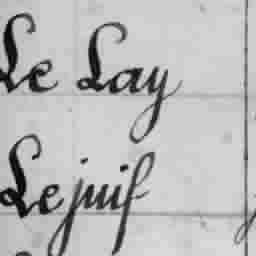 Le Lay
Le juif